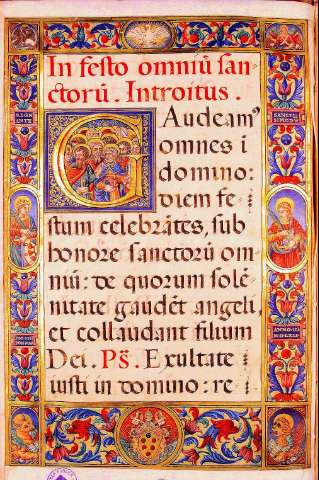 In festo omniū san-
ctorū. Introitus.
GAudeamꝰ
omnes i
domino:
diem fe
stum celebrātes, sub
honore sanctorū om
niū: de quorum solē
nitate gaudēt angeli,
et collaudant filium
Dei. Ps̄. Exultate
iusti in domino: re